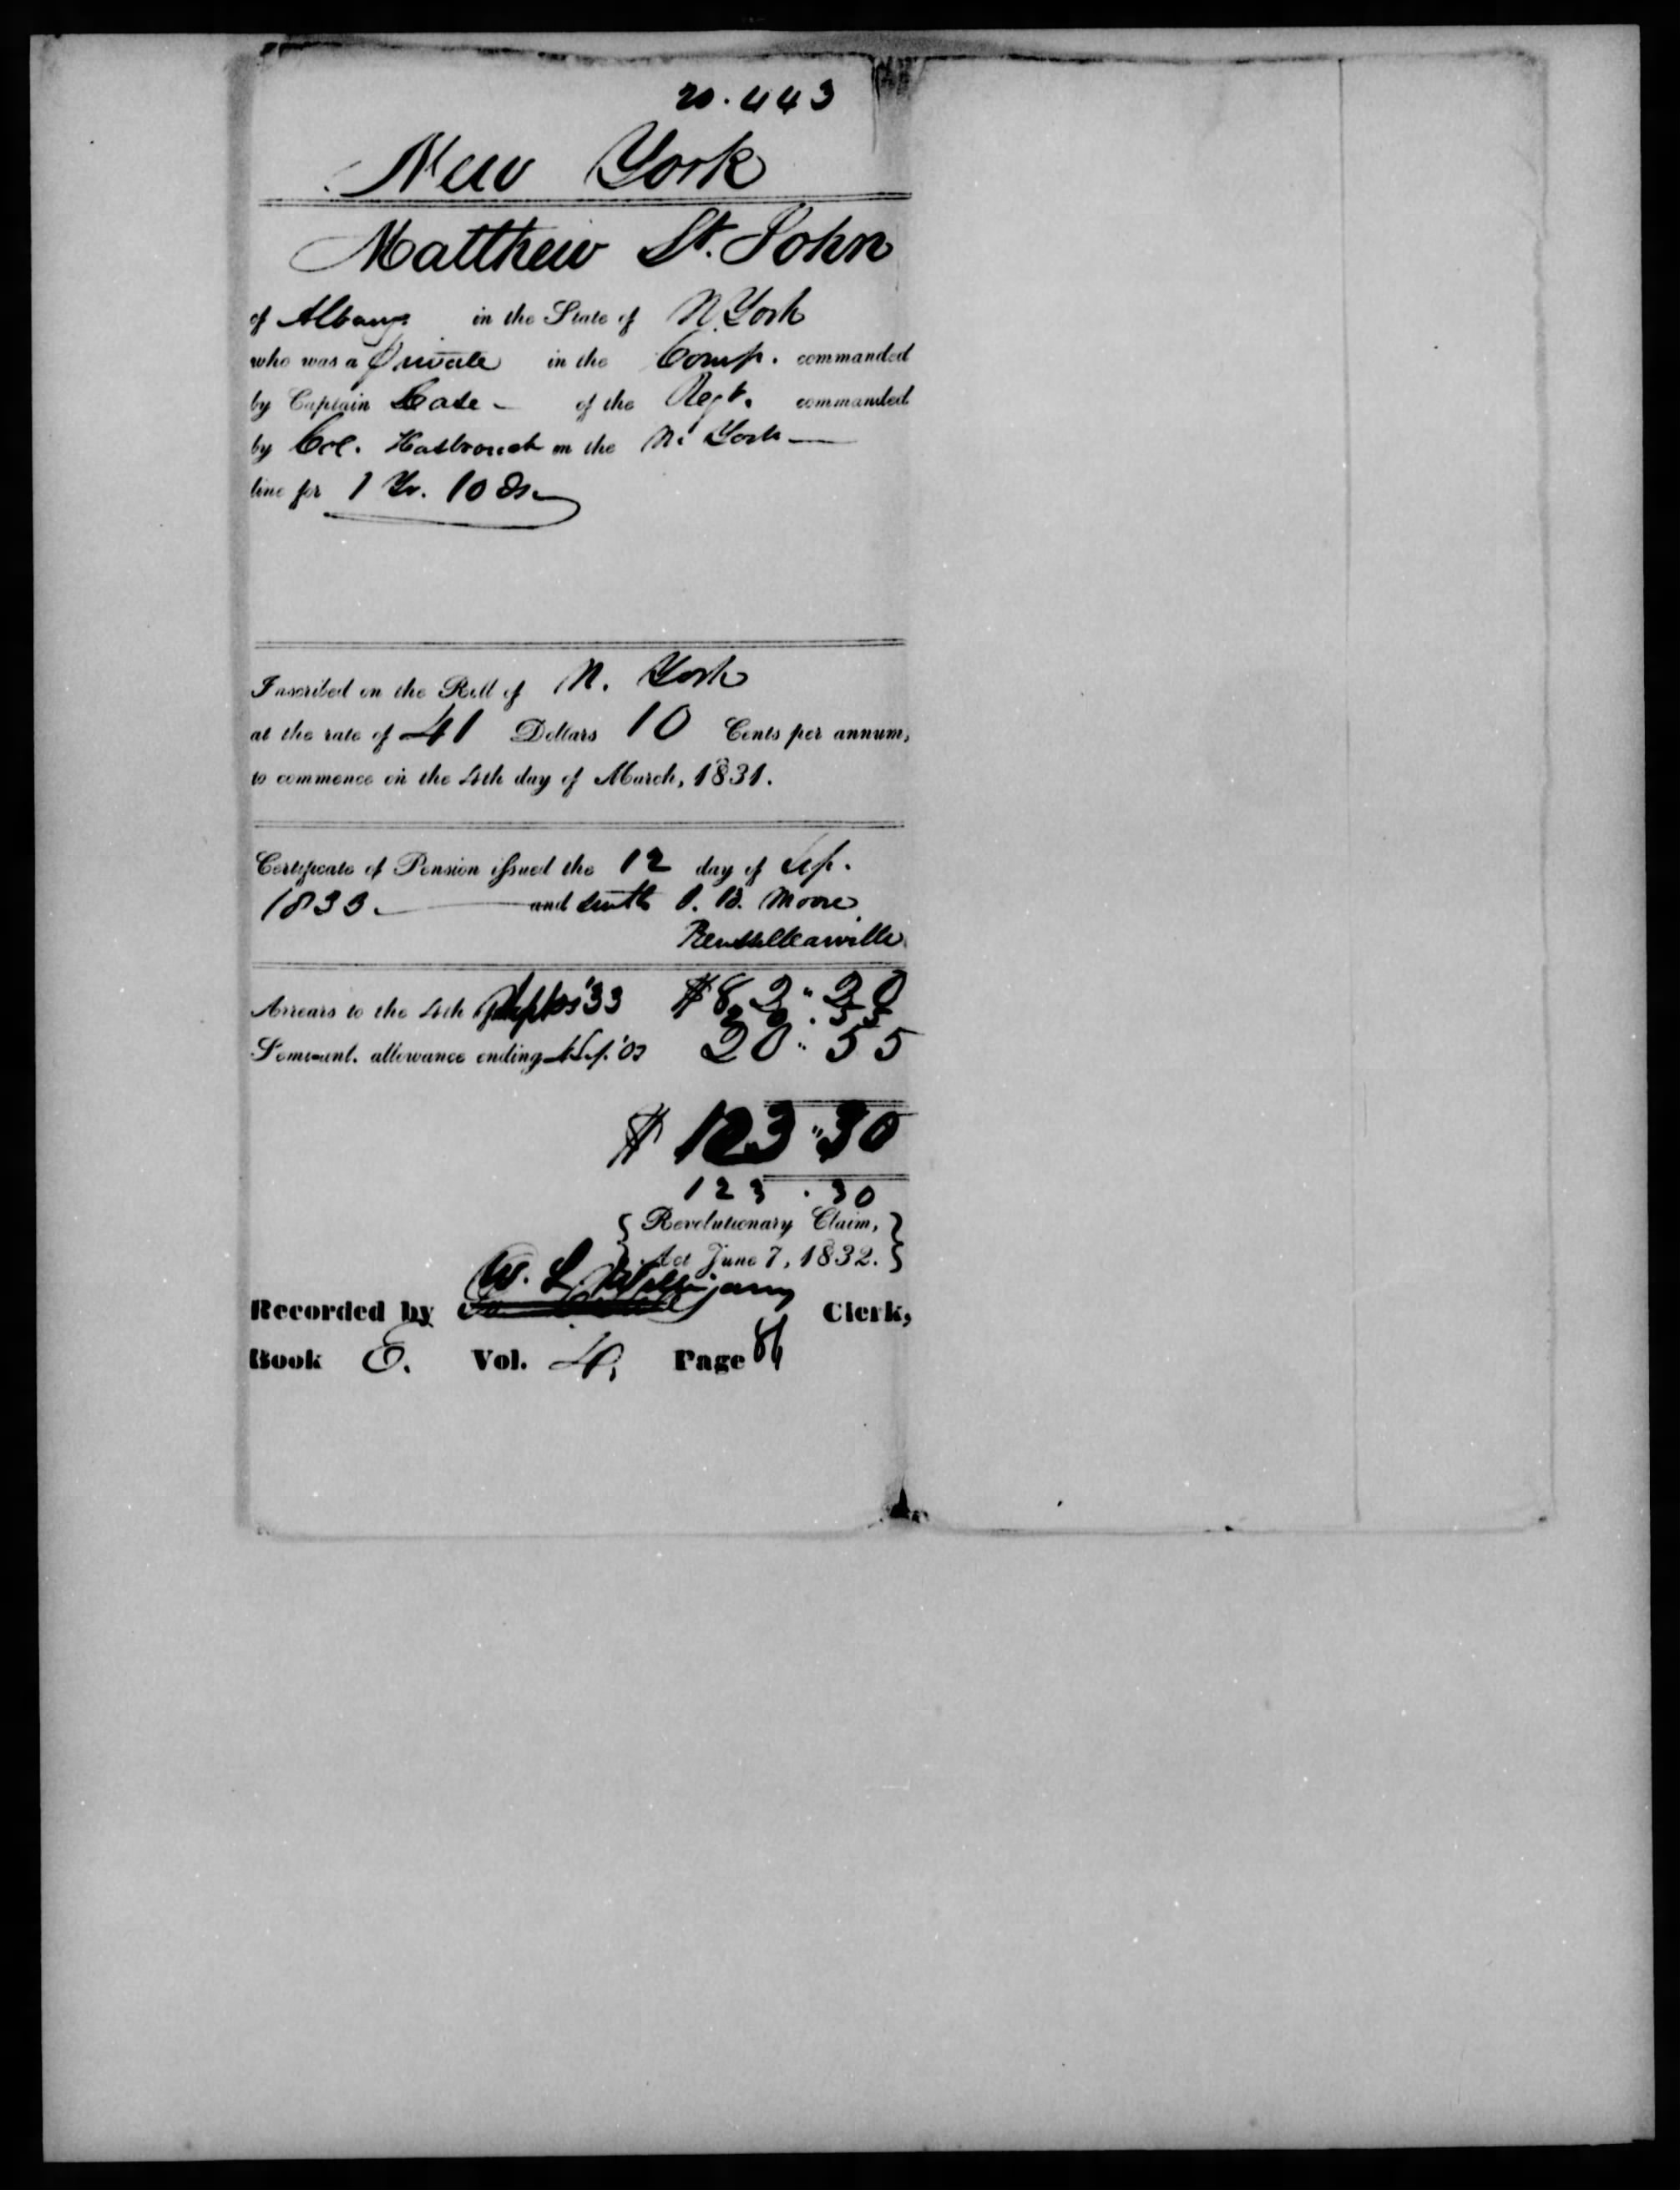 20.443
New York
Matthew St. John
of Albany in the State of N. York
who was a Private in the Comp. commanded
by Captain Case - of the Regt. commanded
by Col. Hasbrouck in the N. York
line for 1 Yr. 10 Ds.
Inscribed on the Roll of N. York
at the rate of 41 Dollars 10 Cents per annum,
to commence on the 4th day of March, 1831.
Certificate of Pension issued the 12 day of Sep.
1833. and sent to B. Moore
Rensselaerville
Arrears to the 4th '33 $82.20
20.55
Semi-anl. allowance ending Sep. 20.55
$123.30
123.30
Revolutionary Claim,
Act June 7, 1832.
W. L. Williams
Recorded by Clerk,
Book E. Vol. 4, Page 86